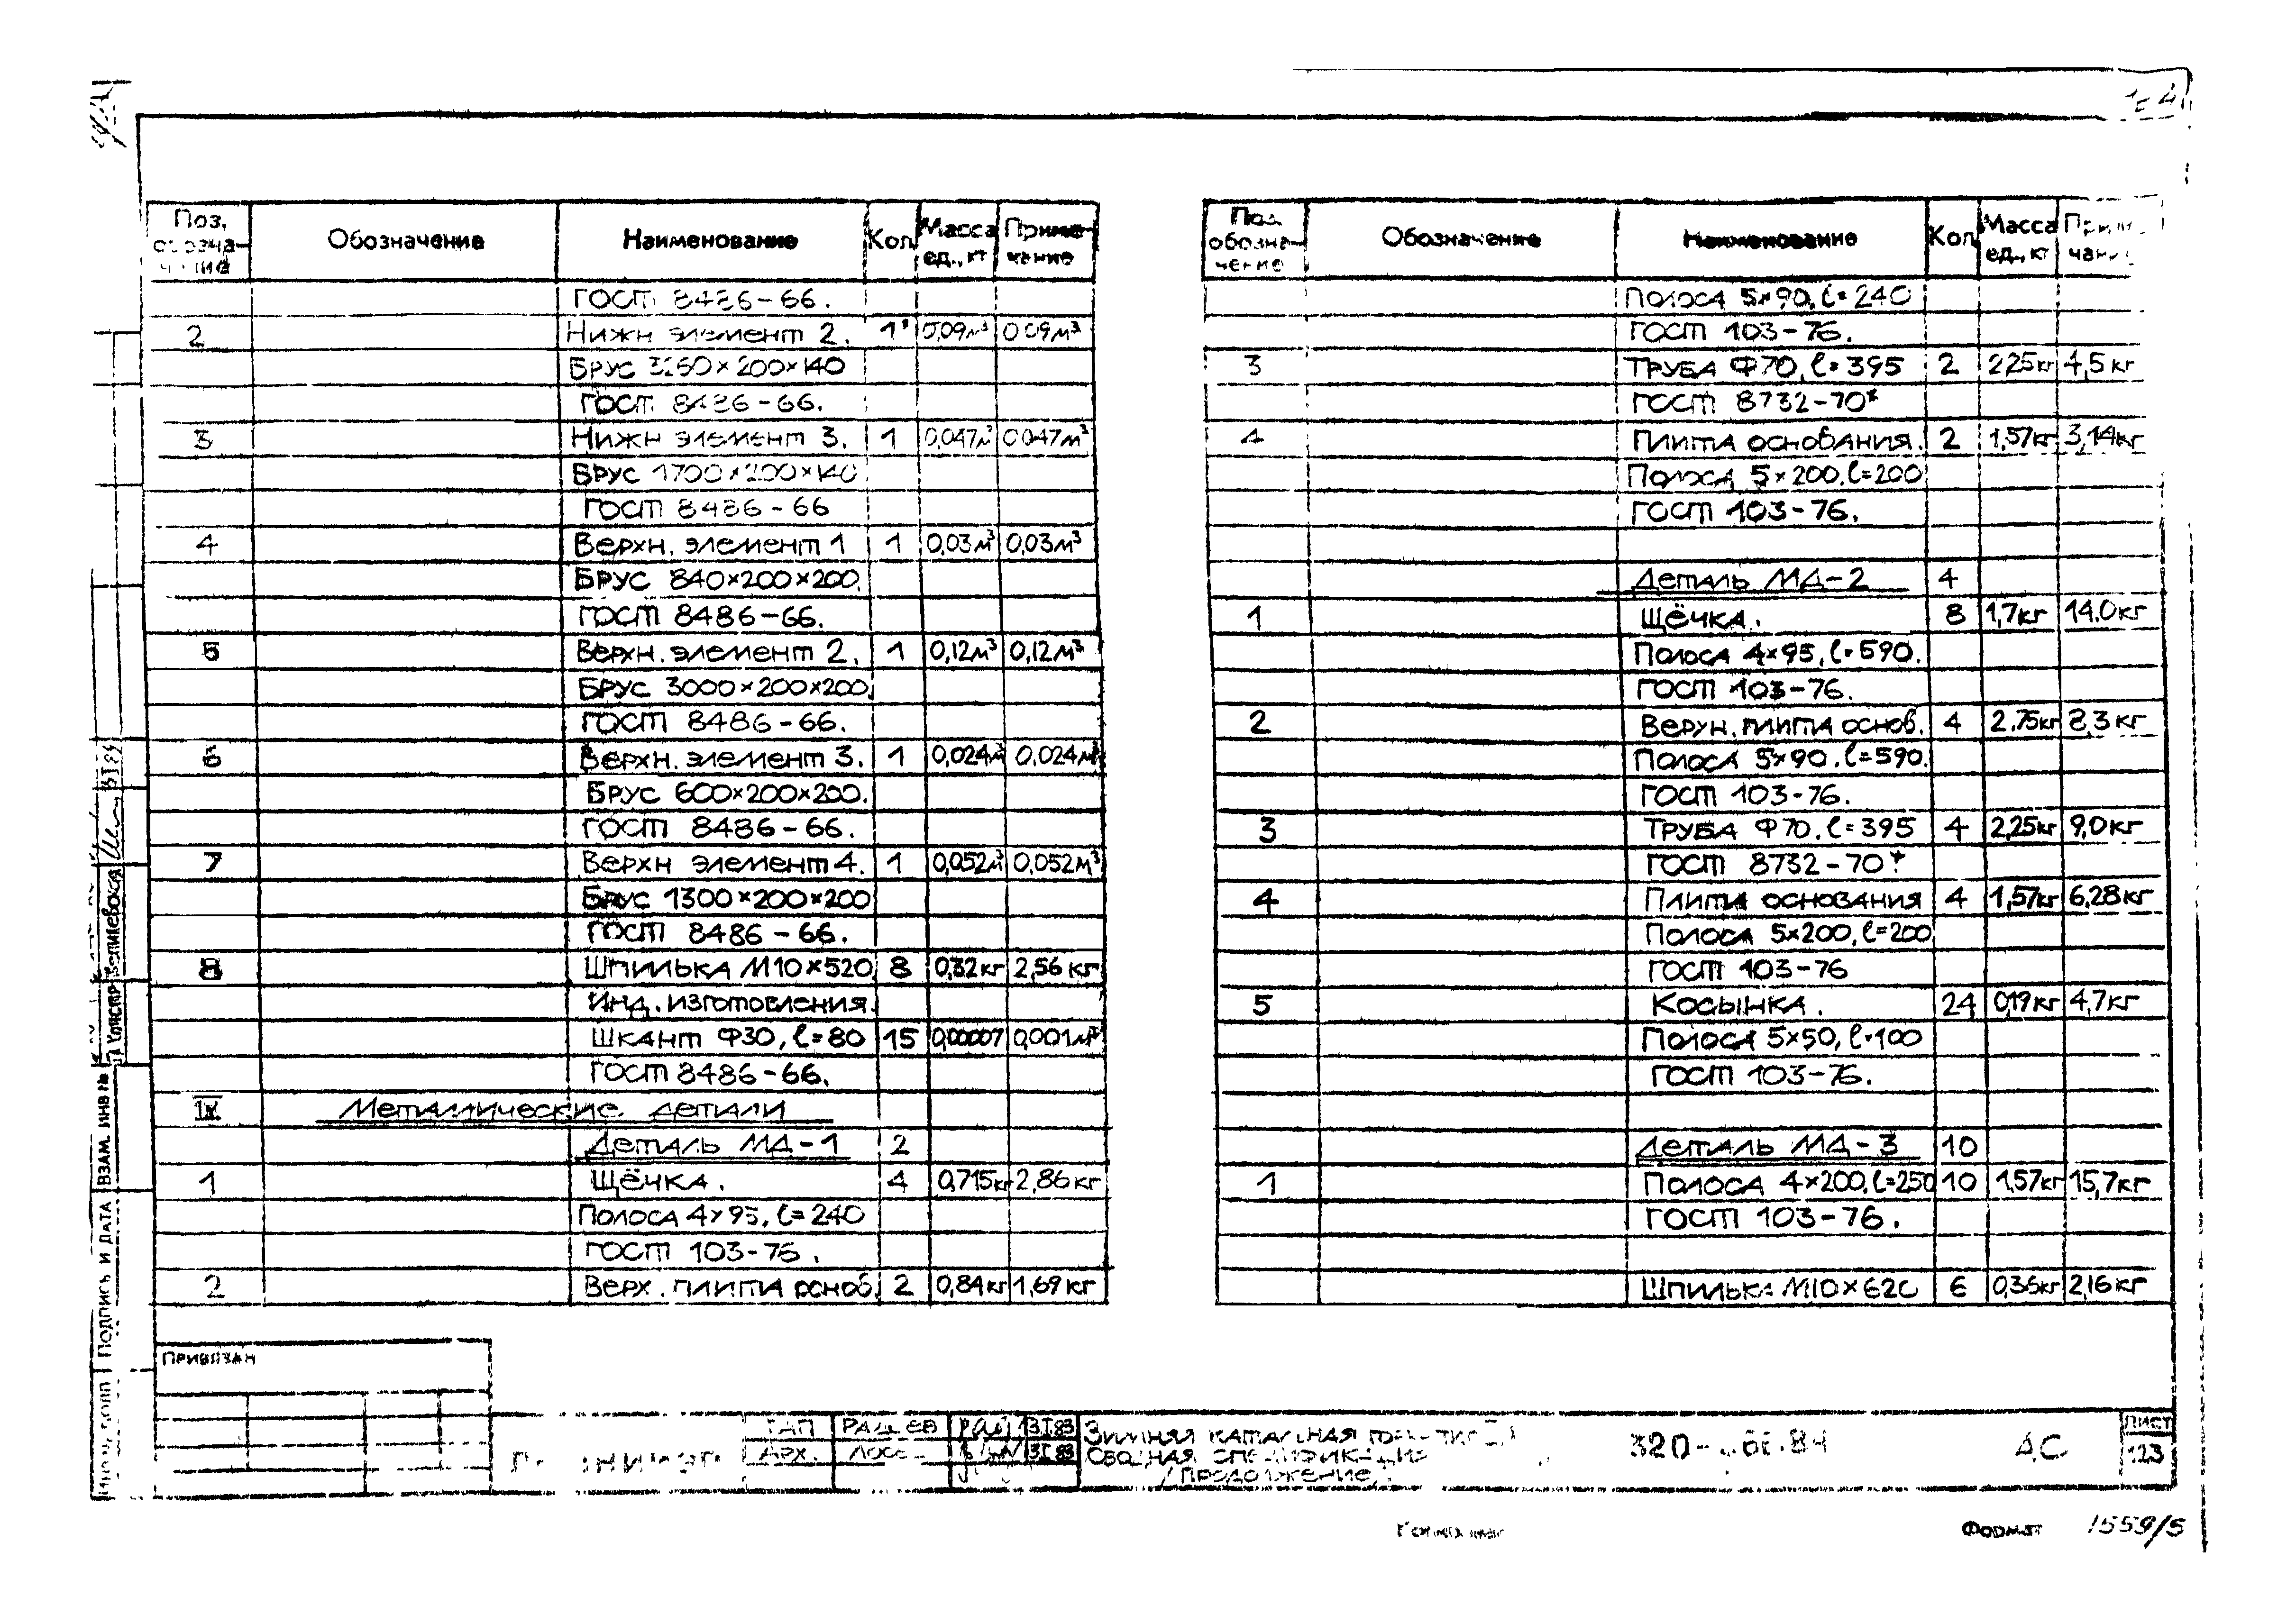 Поз. обозна- чение Обозначение Наименование Кол. Масса ед., кг Приме- чание
ГОСТ 8486-66.
2 Нижн элемент 2. 1 0,09м³ 0.09м³
Брус 3260×200×140
ГОСТ 8486-66.
3 Нижн элемент 3. 1 0,047м³ 0.047м³
Брус 1700×200×140
ГОСТ 8486-66
4 Верхн. элемент 1 1 0,03м³ 0,03м³
Брус 840×200×200.
ГОСТ 8486-66.
5 Верхн. элемент 2. 1 0,12м³ 0,12м³
Брус 3000×200×200.
ГОСТ 8486-66.
6 Верхн. элемент 3. 1 0,024м³ 0,024м³
Брус 600×200×200.
ГОСТ 8486-66.
7 Верхн элемент 4. 1 0,052м³ 0,052м³
Брус 1300×200×200
ГОСТ 8486-66.
8 Шпилька М10×520 8 0,32кг 2,56кг
Инд. изготовления.
Шкант Ф30, ℓ=80 15 0,00007 0,001м³
ГОСТ 8486-66.
IV Металлические детали
Деталь МД-1 2
1 Щёчка. 4 0,715кг 2,86кг
Полоса 4×95, ℓ=240
ГОСТ 103-76.
2 Верх. плита основ. 2 0,84кг 1,69кг
Поз. обозна- чение Обозначение Наименование Кол Масса ед., кг Приме- чание
Полоса 5×90, ℓ=240
ГОСТ 103-76.
3 Труба Ф70, ℓ=395 2 2,25кг 4,5кг
ГОСТ 8732-70*
4 Плита основания. 2 1,57кг 3,14кг
Полоса 5×200, ℓ=200
ГОСТ 103-76.
Деталь МД-2 4
1 Щёчка. 8 1,7кг 14.0кг
Полоса 4×95, ℓ=590.
ГОСТ 103-76.
2 Верхн. плита основ. 4 2,75кг 8,3кг
Полоса 5×90. ℓ=590.
ГОСТ 103-76.
3 Труба Ф70. ℓ=395 4 2,25кг 9,0кг
ГОСТ 8732-70*
4 Плита основания 4 1,57кг 6,28кг
Полоса 5×200, ℓ=200
ГОСТ 103-76
5 Косынка. 24 0,19кг 4,7кг
Полоса 5×50, ℓ=100
ГОСТ 103-76.
Деталь МД-3 10
1 Полоса 4×200, ℓ=250 10 1,57кг 15,7кг
ГОСТ 103-76.
Шпилька М10×620 6 0,36кг 2,16кг
Подпись и дата Взам. инв №
Привязан
ГАП Ращев 13.I.83
Арх. 13.I.83
Зимняя катальная горка
Сводная спецификация
/Продолжение/.
АС
Лист
123
Формат 1559/5